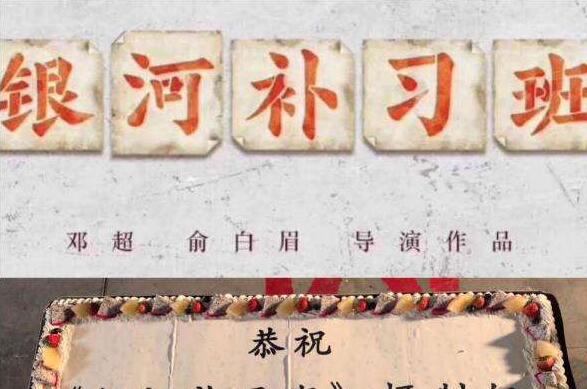 银河补习班
邓超 俞白眉 导演作品
恭祝